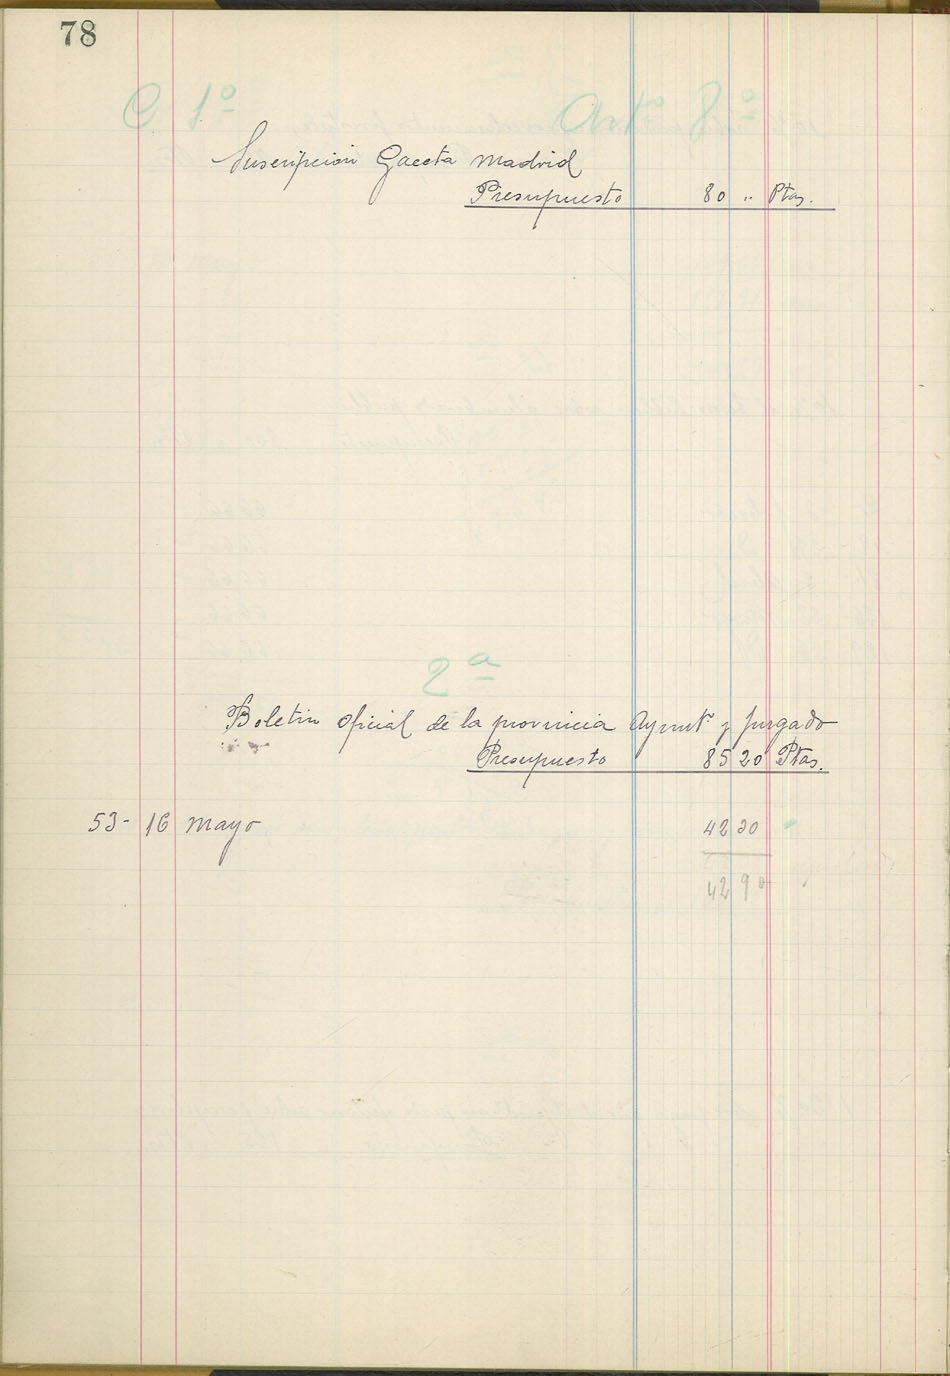 78
C 1º Artº 8º
Suscripcion Gaceta Madrid
Presupuesto 80 " Ptas.
2ª
Boletin Oficial de la provincia Aymtº y Jurgado
Presupuesto 85 20 Ptas.
53- 16 Mayo 42 90
42 90